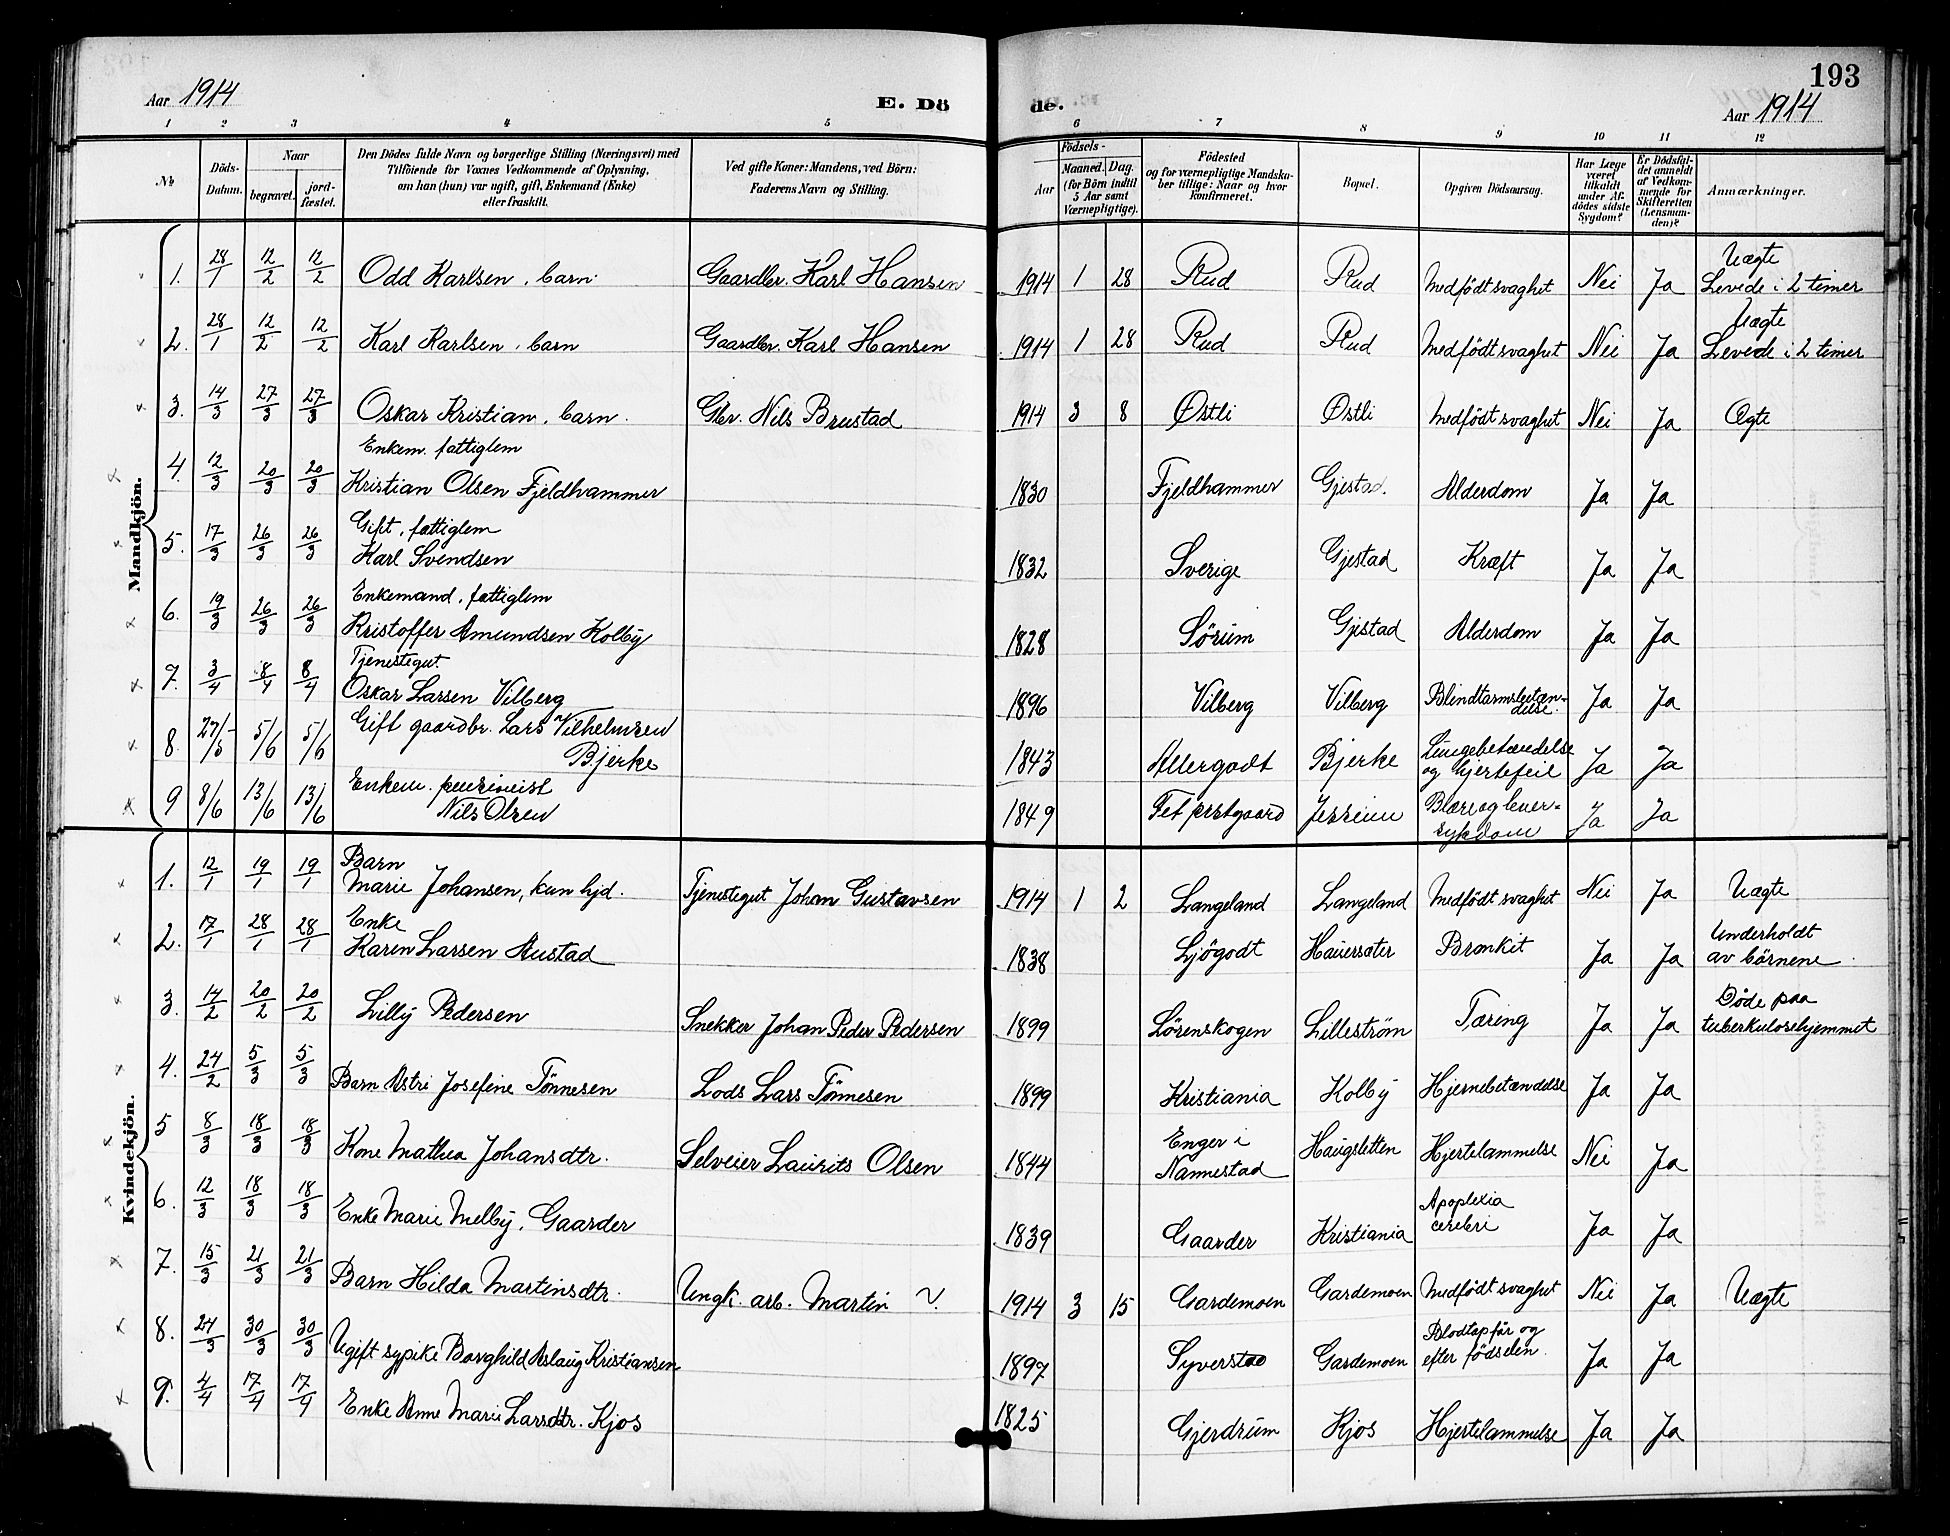 Aar 1914
E. Dö
de.
193
Aar 1914
1 2 3 4 5 6 7 8 9 10 11 12
No
Döds-Datum.
Naar
begravet.
jord-fæstet.
Den Dödes fulde Navn og borgerlige Stilling (Næringsvei) med
Tilföiende for Voxnes Vedkommende af Oplysning,
om han (hun) var ugift, gift, Enkemand (Enke)
eller fraskilt.
Ved gifte Koner: Mandens, ved Börn:
Faderens Navn og Stilling.
Födsels-
Aar
Maaned. Dag.
(for Börn indtil
5 Aar samt
Værnepligtige).
Födested
og for værnepligtige Mandska-
ber tillige: Naar og hvor
konfirmeret.
Bopæl.
Opgiven Dödsaarsag.
Har Læge
været
tilkaldt
under Af-
dödes sidste
Sygdom?
Er Dödsfal-
det anmeldt
af Vedkom-
mende for
Skifteretten
(Lensman-
den)?
Anmærkninger.
Mandkjön.
1. 28/1 12/2 12/2 Odd Karlsen, barn. Gaardbr. Karl Hansen 1914 1 28 Rud Rud Medfödt svaghet Nei Ja Uægte Levede i 2 timer
2. 28/1 12/2 12/2 Karl Karlsen, barn Gaardbr. Karl Hansen 1914 1 28 Rud Rud Medfödt svaghet Nei Ja Uægte Levede i 2 timer
3. 14/3 27/3 27/3 Oskar Kristian, barn. Gbr. Nils Brustad 1914 3 8 Østli Østli Medfödt svaghet Nei Ja Ægte
4. 12/3 20/3 20/3 Enkem. fattiglem Kristian Olsen Fjeldhammer 1830 Fjeldhammer Gjestad. Alderdom Ja Ja
5. 17/3 26/3 26/3 Gift, fattiglem Karl Svendsen 1832 Sverige Gjestad Kræft Ja Ja
6. 19/3 26/3 26/3 Enkemand, fattiglem Kristoffer Amundsen Kolby 1828 Sörum Gjestad Alderdom Ja Ja
7. 3/4 8/4 8/4 Tjenestegut. Oskar Larsen Vilberg 1896 Vilberg Vilberg Blindtarmsbetæn-delse. Ja Ja
8. 27/5 5/6 5/6 Gift gaardbr. Lars Vilhelmsen Bjerke 1843 Allergodt Bjerke Lungebetændelse og hjertefeil Ja Ja
9 8/6 13/6 13/6 Enkem. pensionist Nils Olsen 1849 Fet prstgaard Jessum Blære og lever-sykdom Ja Ja
Kvindekjön.
1. 12/1 19/1 19/1 Barn Marie Johansen, kun hjd. Tjenestegut Johan Gustavsen 1914 1 2 Langeland Langeland Medfödt svaghet Nei Ja Uægte
2. 17/1 28/1 28/1 Enke Karen Larsen Austad 1838 Ljögodt Hauersæter Bronkit Ja Ja Underholdt av börnene.
3. 14/2 20/2 20/2 Lilly Pedersen Snekker Johan Peder Pedersen 1899 Lörenskogen Lilleström Tæring Ja Ja Döde paa tuberkulosehjemmet
4. 24/2 5/3 5/3 Barn Astri Josefine Tönnesen Lods Lars Tönnesen 1899 Kristiania Kolby Hjernebetændelse Ja Ja
5 8/3 18/3 18/3 Kone Mathea Johansdtr. Selveier Laurits Olsen 1844 Enger i Nannestad Haugsletten Hjertelammelse Nei Ja
6. 12/3 18/3 18/3 Enke Marie Melby, Gaarder 1839 Gaarder Kristiania Apoplexia cerebri Ja Ja
7. 15/3 21/3 21/3 Barn Hilda Martinsdtr. Ungk. arb. Martin N. 1914 3 15 Gardemoen Gardemoen Medfödt svaghet Nei Ja Uægte
8. 24/3 30/3 30/3 Ugift sypike Borghild Aslaug Kristiansen 1897 Syverstad Gardemoen Blodtap för og efter födselen. Ja Ja
9. 4/4 17/4 17/4 Enke Anne Marie Larsdtr. Kjos 1825 Gjerdrum Kjos Hjertelammelse Ja Ja